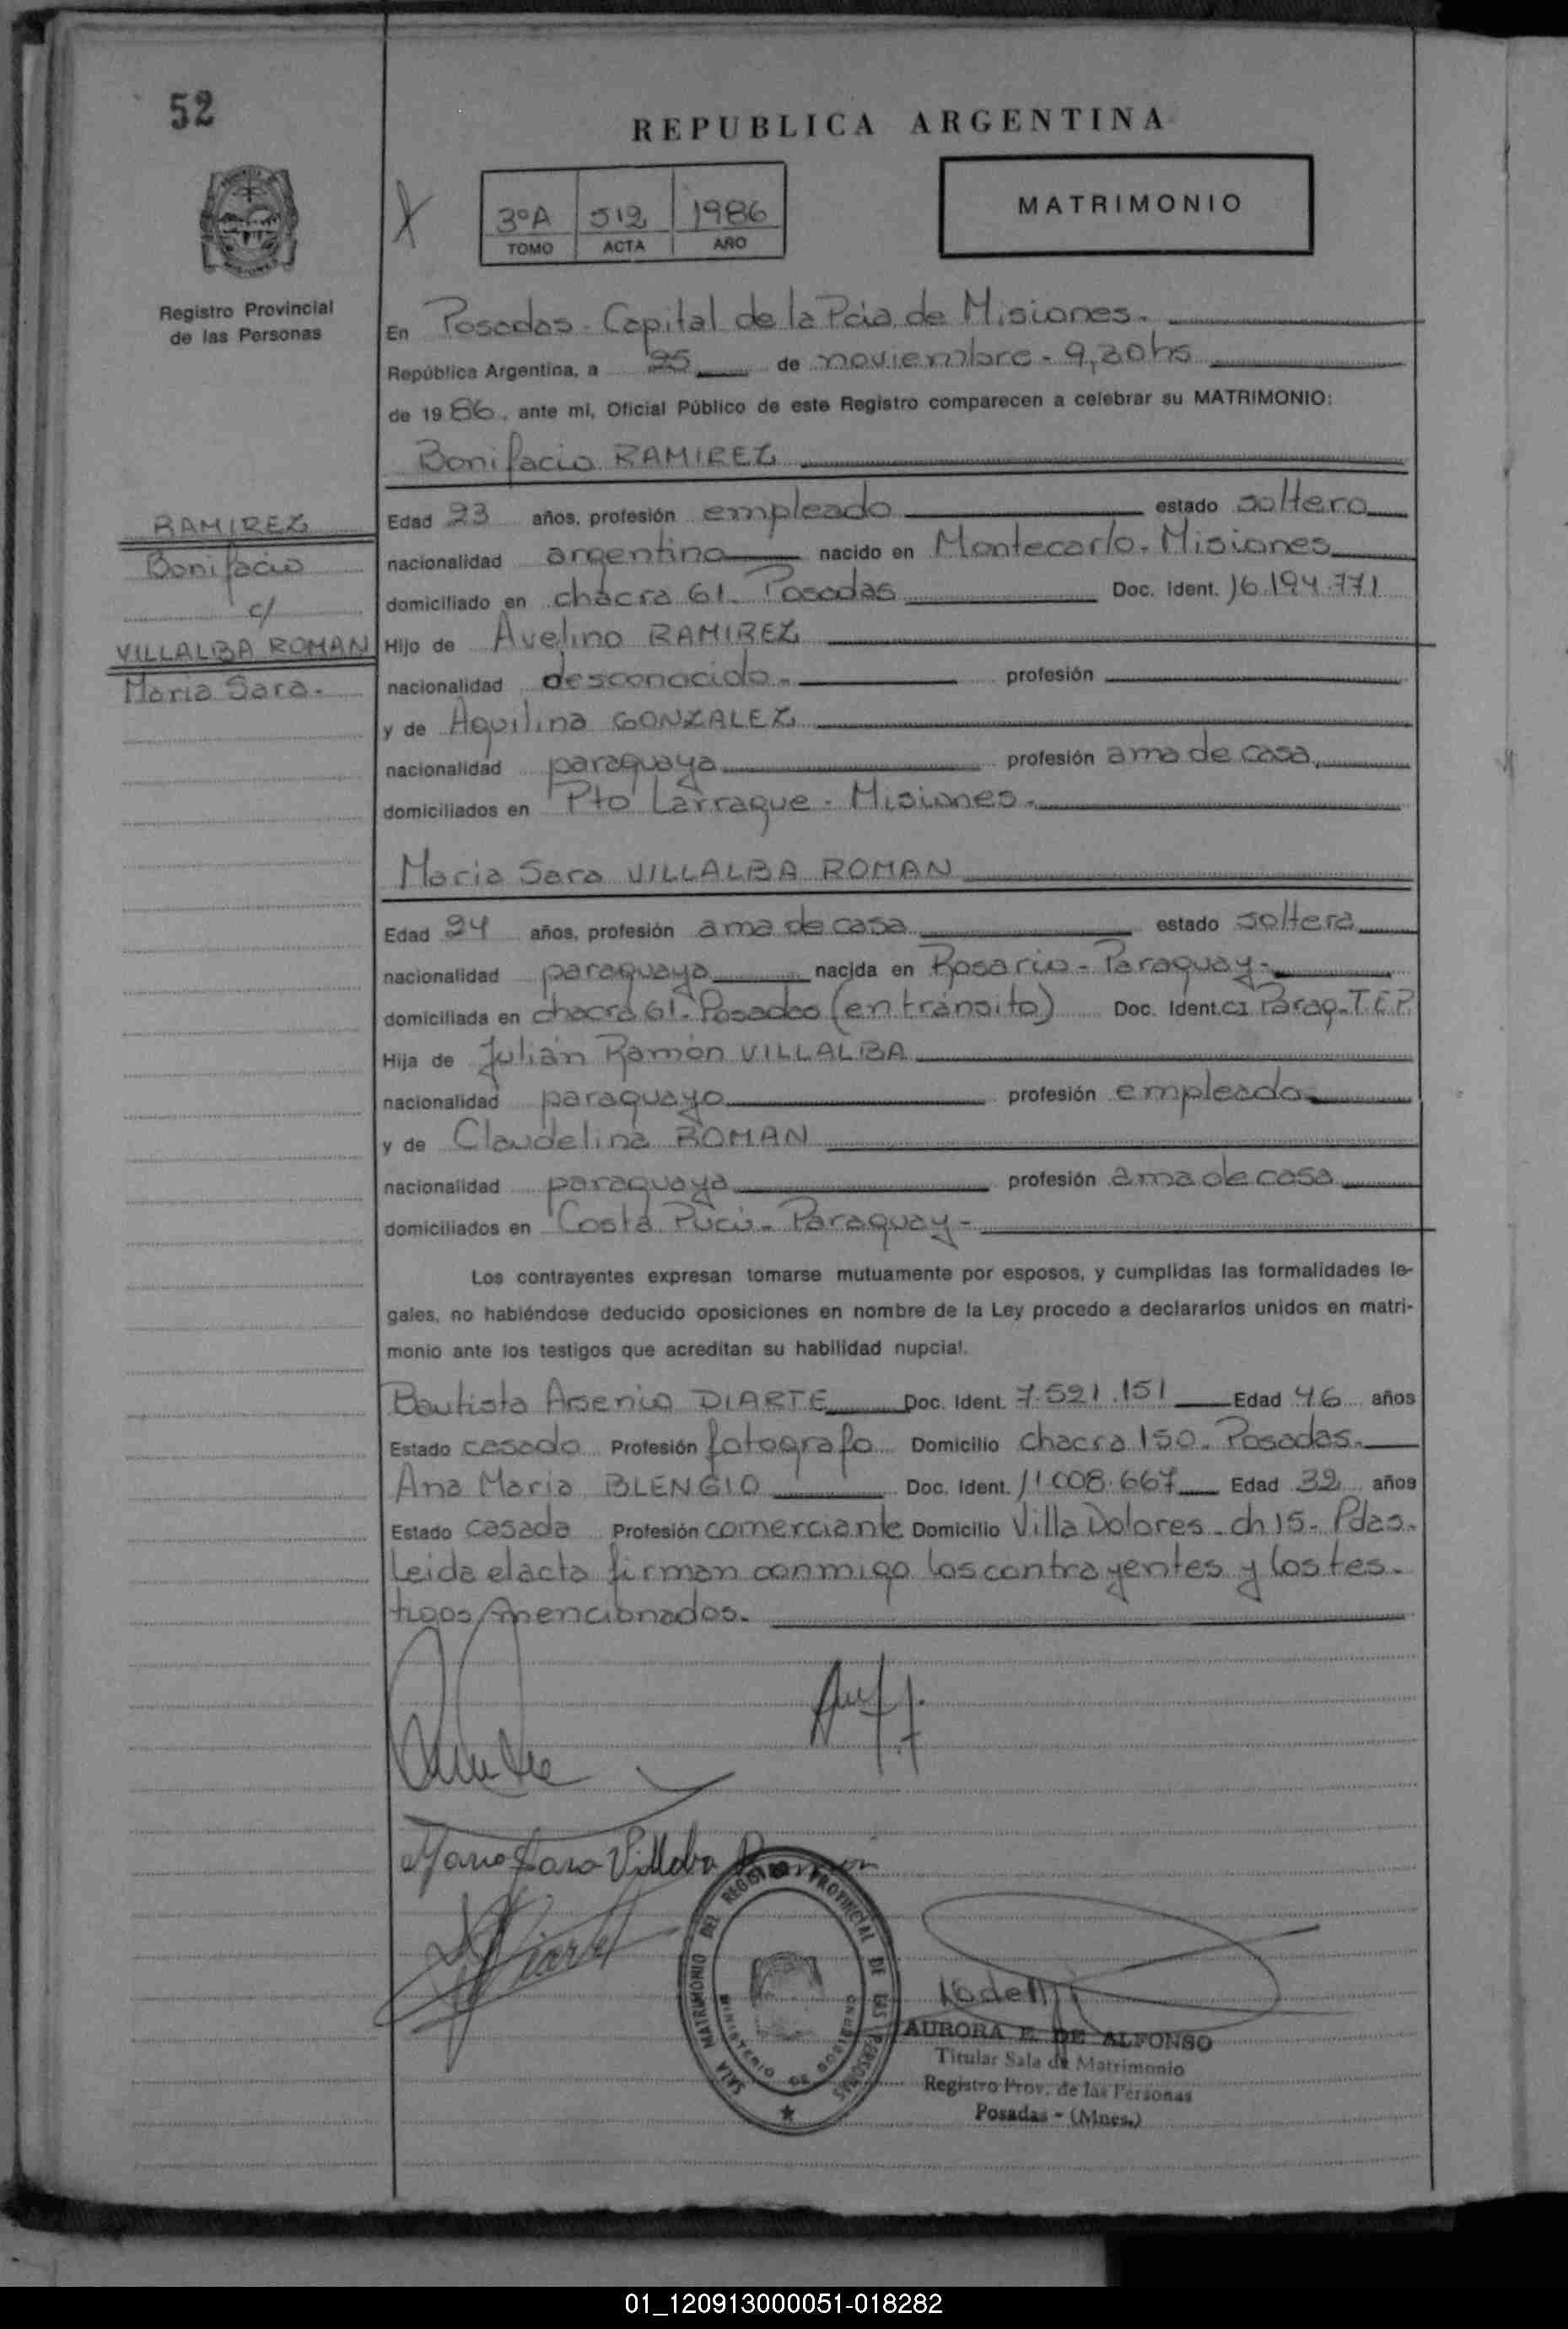 52
REPUBLICA ARGENTINA
3ºA 512 1986
TOMO ACTA AÑO
MATRIMONIO
Registro Provincial
de las Personas
En Posadas - Capital de la Pcia de Misiones.
República Argentina, a 25 de noviembre - 9,30hs
de 1986, ante mí, Oficial Público de este Registro comparecen a celebrar su MATRIMONIO:
Bonifacio RAMIREZ
RAMIREZ
Bonifacio
c/
VILLALBA ROMAN
Maria Sara.
Edad 23 años, profesión empleado estado soltero
nacionalidad argentino nacido en Montecarlo. Misiones
domiciliado en chacra 61. Posadas Doc. Ident. 16.194.771
Hijo de Avelino RAMIREZ
nacionalidad desconocido. profesión
y de Aquilina GONZALEZ
nacionalidad paraguaya profesión ama de casa
domiciliados en Pto Larraque. Misiones.
Maria Sara VILLALBA ROMAN
Edad 24 años, profesión ama de casa estado soltera
nacionalidad paraguaya nacida en Rosario - Paraguay -
domiciliada en chacra 61. Posadas (en tránsito) Doc. Ident. CI Parag. T.E.P.
Hija de Julián Ramón VILLALBA
nacionalidad paraguayo profesión empleado
y de Claudelina ROMAN
nacionalidad paraguaya profesión ama de casa
domiciliados en Costa Pucú - Paraguay -
Los contrayentes expresan tomarse mutuamente por esposos, y cumplidas las formalidades le-
gales, no habiéndose deducido oposiciones en nombre de la Ley procedo a declararlos unidos en matri-
monio ante los testigos que acreditan su habilidad nupcial.
Bautista Arsenio DIARTE Doc. Ident. 7.521.151 Edad 46 años
Estado casado Profesión fotografo Domicilio chacra 150. Posadas.
Ana Maria BLENGIO Doc. Ident. 11.008.667 Edad 32 años
Estado casada Profesión comerciante Domicilio Villa Dolores - ch 15 - Pdas.
Leida el acta firman conmigo los contrayentes y los tes-
tigos mencionados.
Maria Sara Villalba Roman
SALA MATRIMONIO DEL REGISTRO PROVINCIAL DE LAS PERSONAS
MINISTERIO DE GOBIERNO
AURORA E. DE ALFONSO
Titular Sala de Matrimonio
Registro Prov. de las Personas
Posadas - (Mnes.)
01_120913000051-018282